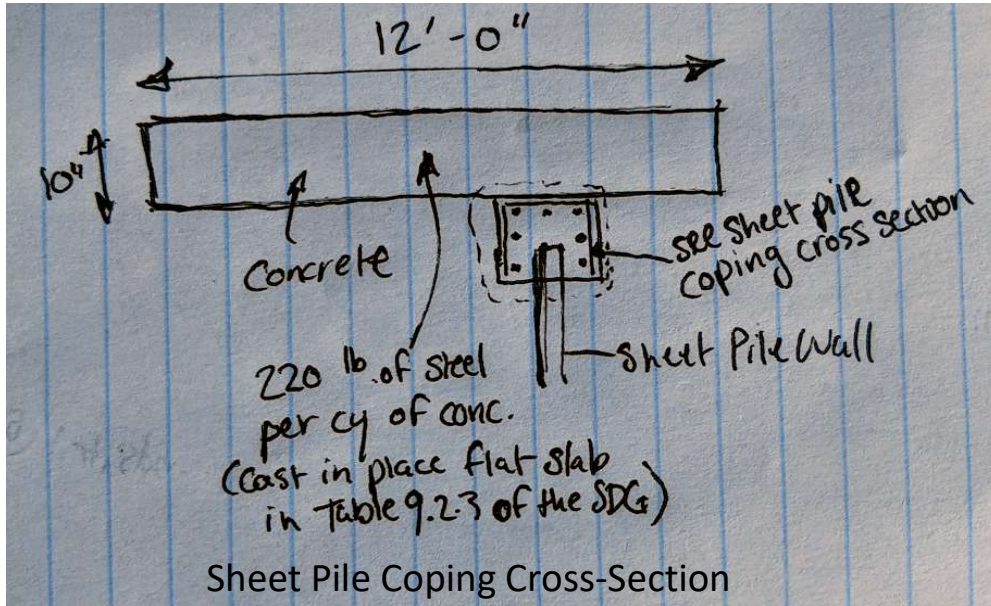 12'-0"
10"
concrete
see sheet pile
coping cross section
sheet Pile Wall
220 lb. of steel
per cy of conc.
(cast in place flat slab
in Table 9.2.3 of the SDG)
Sheet Pile Coping Cross-Section